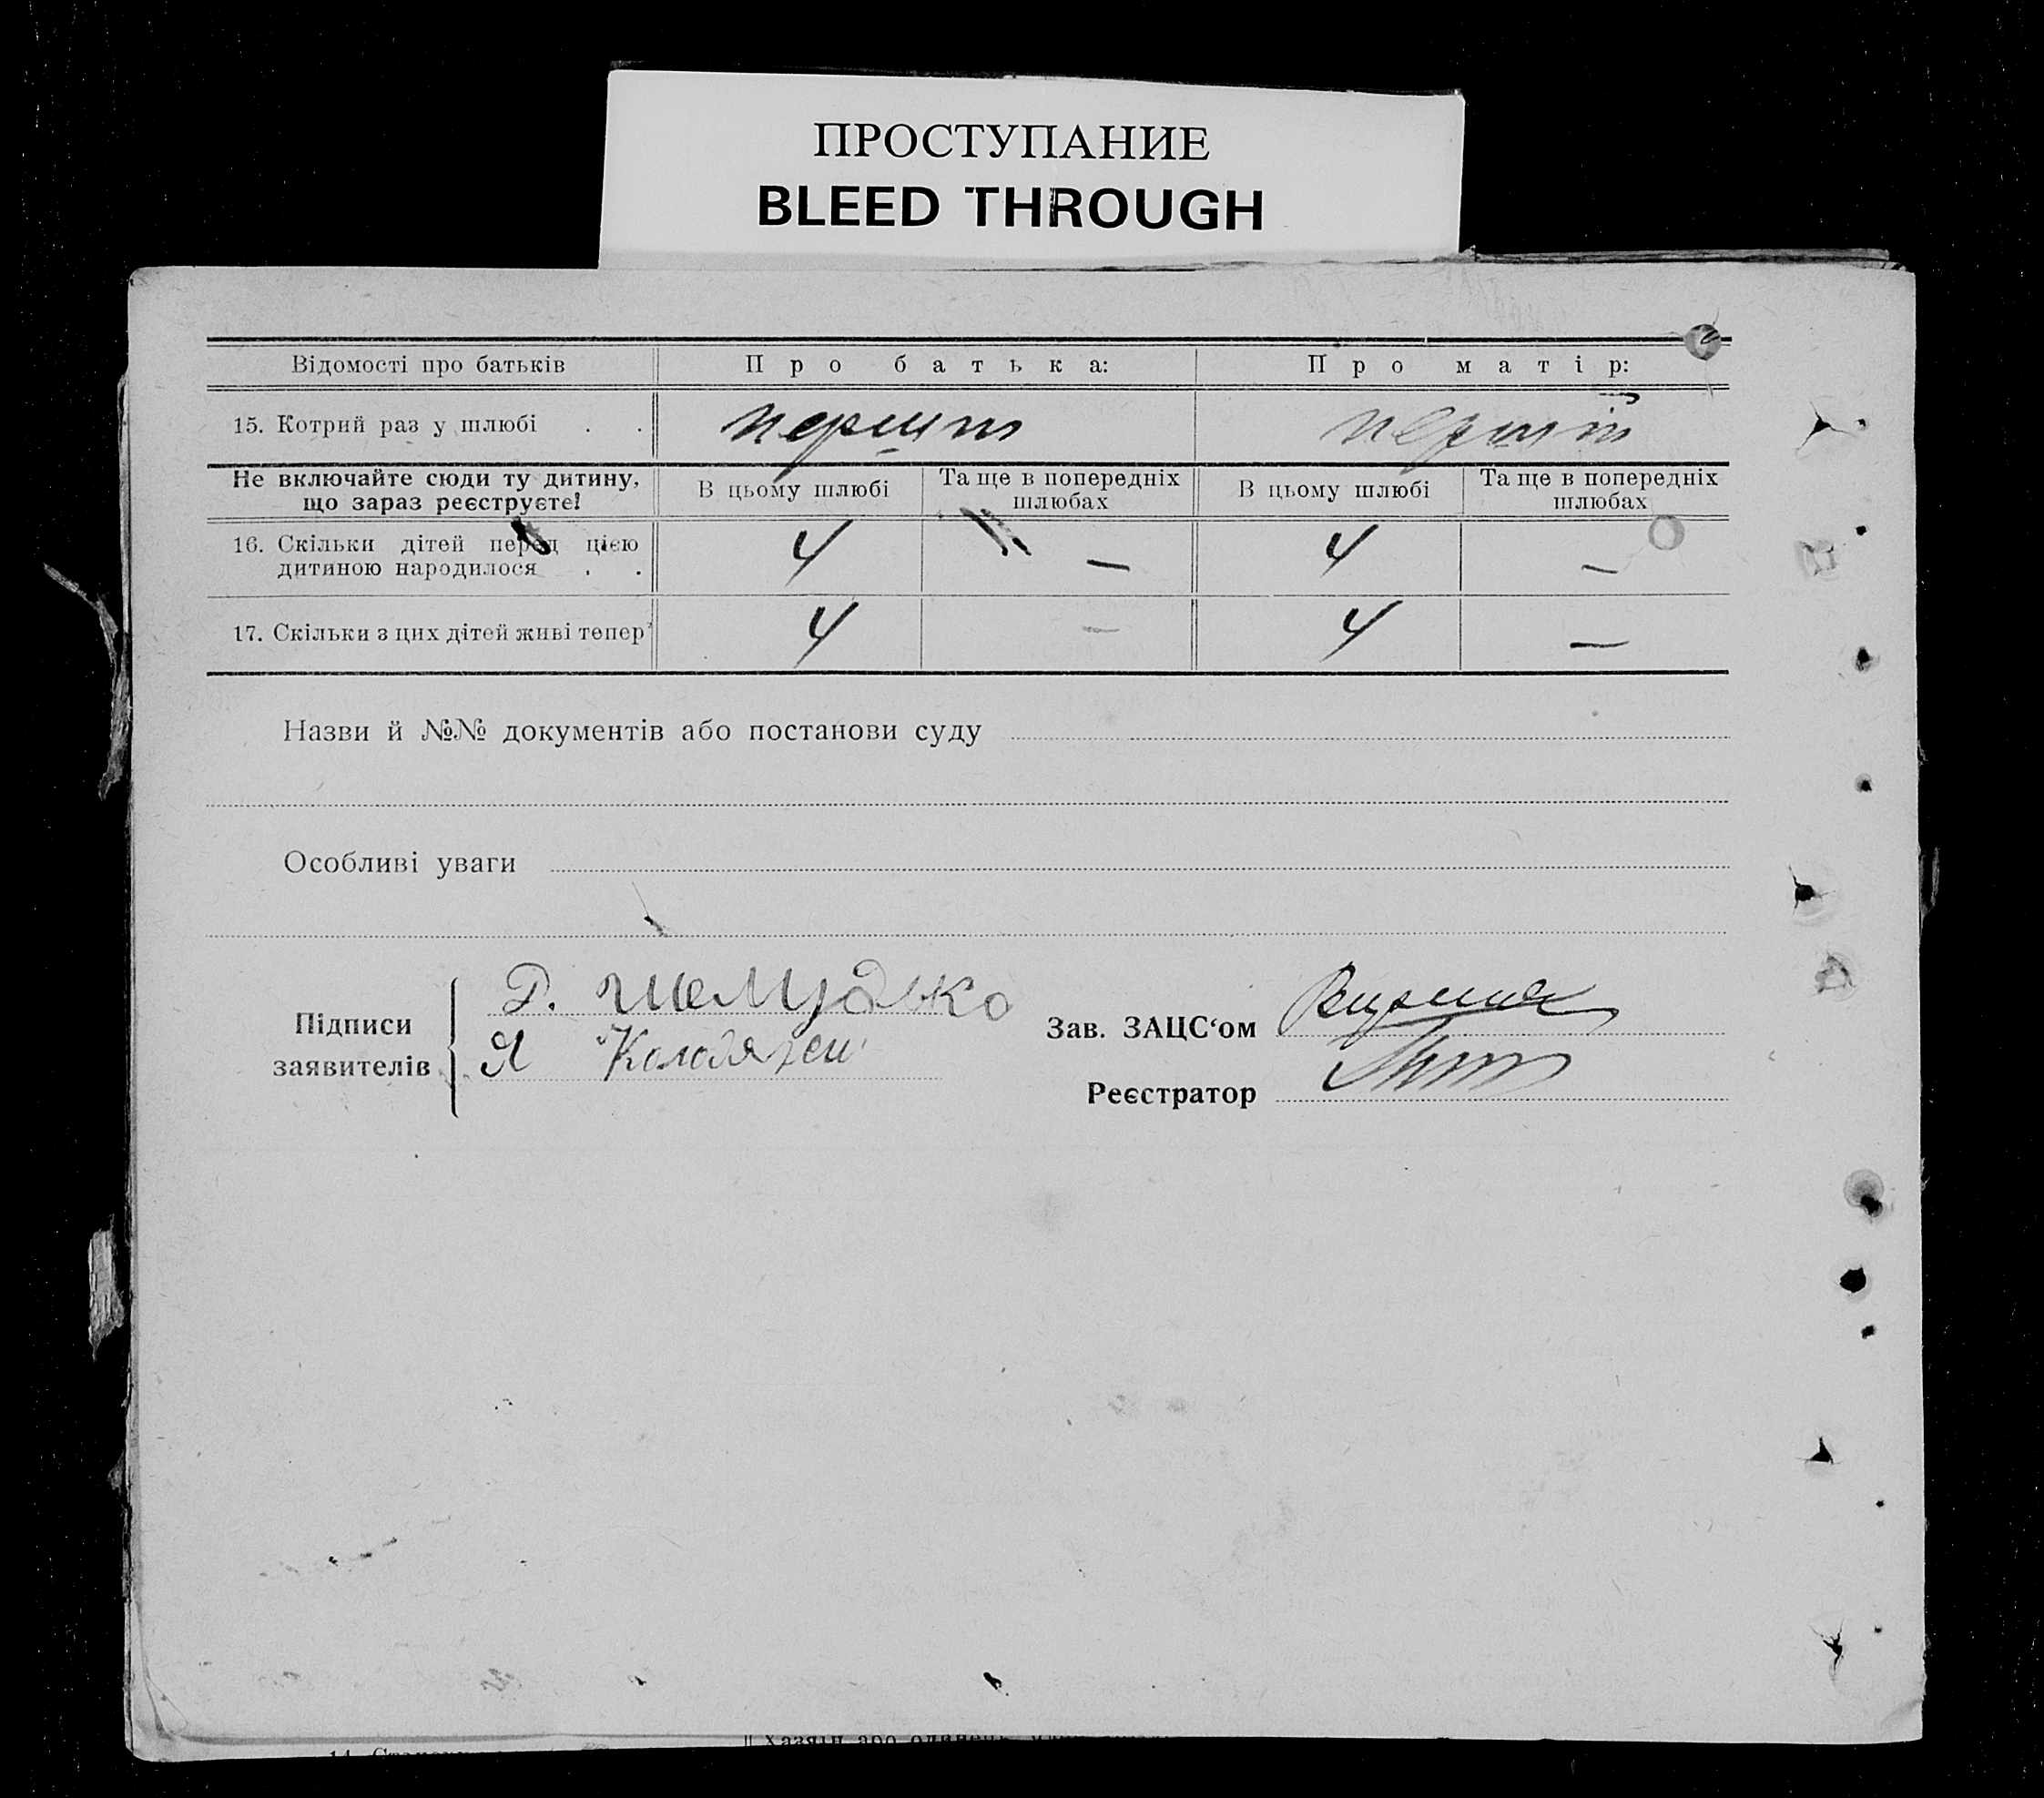 ПРОСТУПАНИЕ
BLEED THROUGH
Відомості про батьків Про батька: Про матір:
15. Котрий раз у шлюбі . . перший перший
Не включайте сюди ту дитину, що зараз реєструєте! В цьому шлюбі Та ще в попередніх шлюбах В цьому шлюбі Та ще в попередніх шлюбах
16. Скільки дітей перед цією дитиною народилося . . 4 — 4 —
17. Скільки з цих дітей живі тепер 4 — 4 —
Назви й №№ документів або постанови суду
Особливі уваги
Підписи заявителів
Г.
Я
Зав. ЗАЦС‘ом
Реєстратор